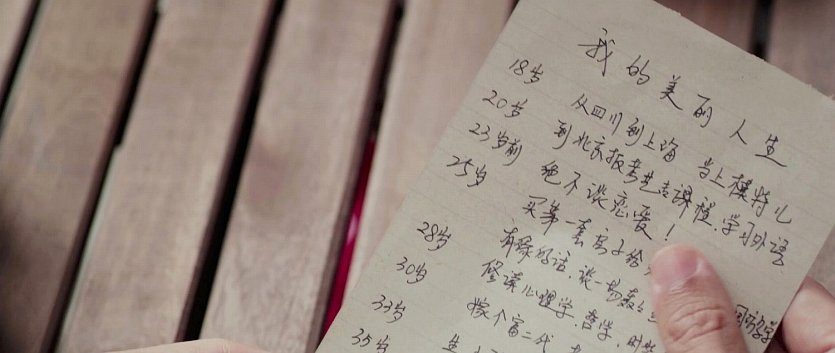 我的美丽人生
18岁 从四川到上海 当上模特儿
20岁 到北京报考艺专课程.学习外语
23岁前 绝不谈恋爱!
25岁 买第一套房子给
28岁 有缘的话,谈一场轰
30岁 修读心理学.哲学,
33岁 嫁个富二代
35岁 生